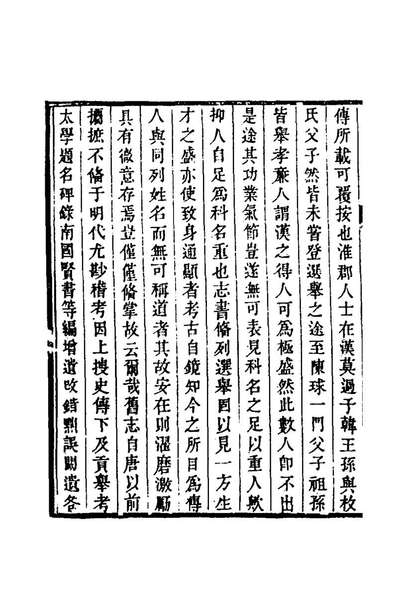 傳所載可覆按也淮郡人士在漢莫過于韓王孫與枚
氏父子然皆未嘗登選舉之途至陳球一門父子祖孫
皆舉孝亷人謂漢之得人可爲極盛然此數人卽不出
是途其功業氣節豈遂無可表見科名之足以重人歟
抑人自足爲科名重也志書俻列選舉固以見一方生
才之盛亦使致身通顯者考古自鏡知今之所目爲傳
人與同列姓名而無可稱道者其故安在則濯磨激勵
具有微意存焉豈僅僅俻掌故云爾哉舊志自唐以前
攟摭不俻于明代尤尠稽考因上搜史傳下及貢舉考
太學題名碑錄南國賢書等編增遺改錯䵝誤闕遺各